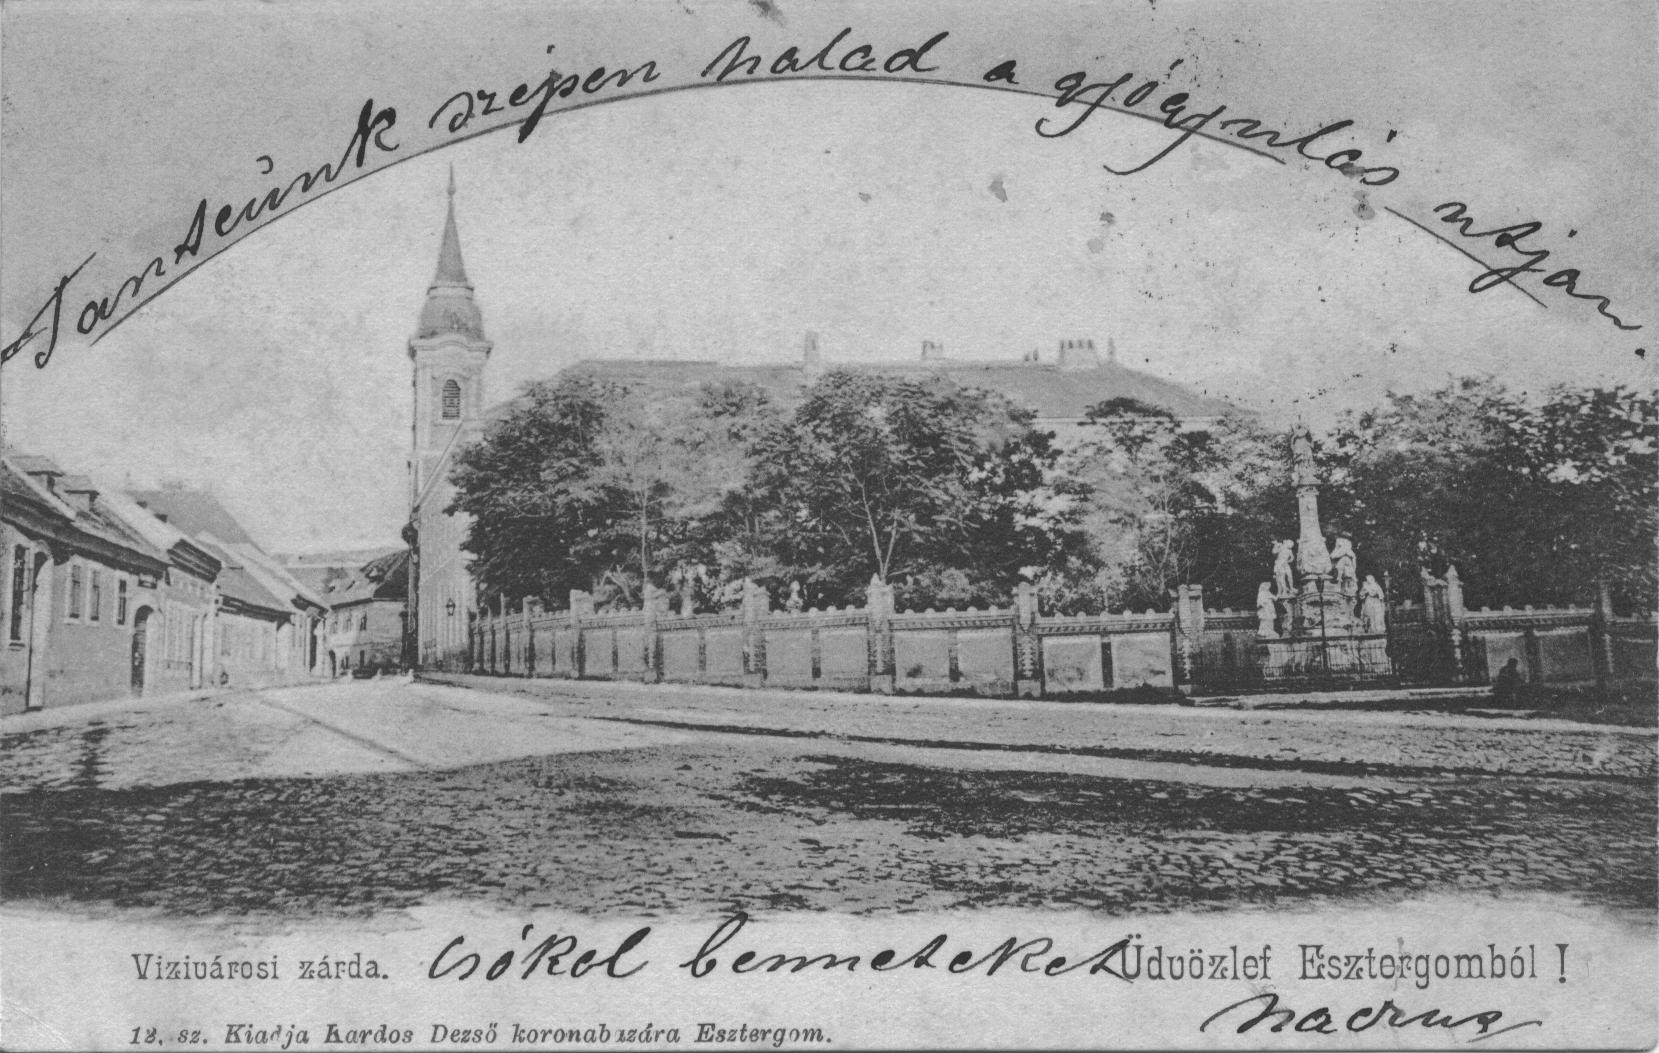 Tantsünk szépen halad a gyógyulás utján.
Vizivárosi zárda. Csókol benneteket Üdvözlet Esztergomból!
12. sz. Kiadja Kardos Dezső koronabazára Esztergom.